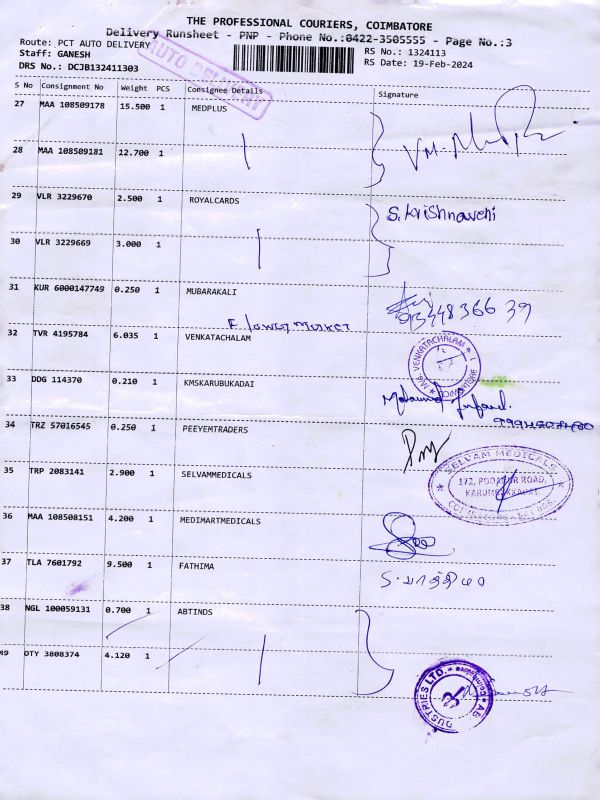 THE PROFESSIONAL COURIERS, COIMBATORE
Delivery Runsheet - PNP - Phone No.:0422-3505555 - Page No.:3
Route: PCT AUTO DELIVERY RS No.: 1324113
Staff: GANESH RS Date: 19-Feb-2024
DRS No.: DCJB132411303
AUTO DELIVERY
S No Consignment No Weight PCS Consignee Details Signature
27 MAA 108509178 15.500 1 MEDPLUS
28 MAA 108509181 12.700 1
29 VLR 3229670 2.500 1 ROYALCARDS S. Krishnaveni
30 VLR 3229669 3.000 1
31 KUR 6000147749 0.250 1 MUBARAKALI
Flower Market
32 TVR 4195784 6.035 1 VENKATACHALAM
M.S. VENKATACHALAM * COIMBATORE *
33 DDG 114370 0.210 1 KMSKARUBUKADAI
34 TRZ 57016545 0.250 1 PEEYEMTRADERS
35 TRP 2083141 2.900 1 SELVAMMEDICALS
SELVAM MEDICALS
172, PODANUR ROAD,
36 MAA 108508151 4.200 1 MEDIMARTMEDICALS
37 TLA 7601792 9.500 1 FATHIMA
38 NGL 100059131 0.700 1 ABTINDS
49 OTY 3808374 4.120 1
DUSTRIES LTD. * Coimbatore * AB